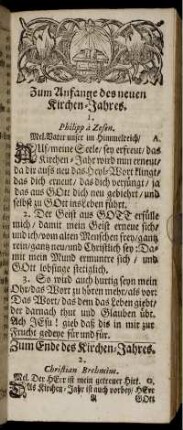 Zum Anfange des neuen
Kirchen-Jahres.
1.
Philipp à Zesen.
Mel. Vater unser im Himmelreich/ A.
AUf/ meine Seele/ sey erfreut/ das
Kirchen-Jahr wird nun erneut/
da dir aufs neu das Heyls-Wort klingt/
das dich erneut/ das dich verjüngt/ ja
das aus GOtt dich neu gebiehrt/ und
selbst zu GOtt ins Leben führt.
2. Der Geist aus GOTT erfülle
mich/ damit mein Geist erneue sich/
und ich/ vom alten Menschen frey/ gantz
rein/ gantz neu/ und Christlich sey: Daß
mit mein Mund ermuntre sich/ und
GOtt lobsinge stetiglich.
3. So wird auch hurtig seyn mein
Ohr/ das Wort zu hören mehr/ als vor:
Das Wort/ das dem das Leben giebt/
der darnach thut und Glauben übt.
Ach JEsu! gieb daß diß in mir zur
Frucht gedeye für und für.
Zum Ende des Kirchen-Jahres.
2.
Christian Brehmim.
Mel. Der HErr ist mein getreuer Hirt. G.
DAs Kirchen-Jahr ist auch vorbey/ HErr
GOtt